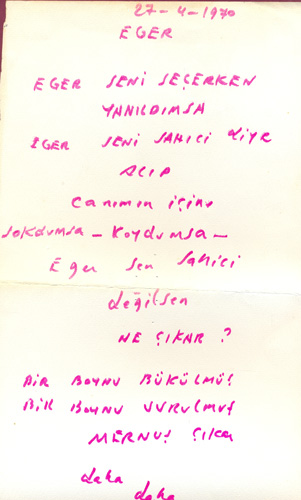 27-4-1970
EĞER
EĞER SENİ SEÇERKEN
YANILDIMSA
EĞER SENİ SAHİCİ DİYE
ALIP
canımın içine
sokdumsa - koydumsa -
Eğer sen sahici
değilsen
NE ÇIKAR ?
BİR BOYNU BÜKÜLMÜŞ
BİR BOYNU VURULMUŞ
ÇIKAR
daha
daha